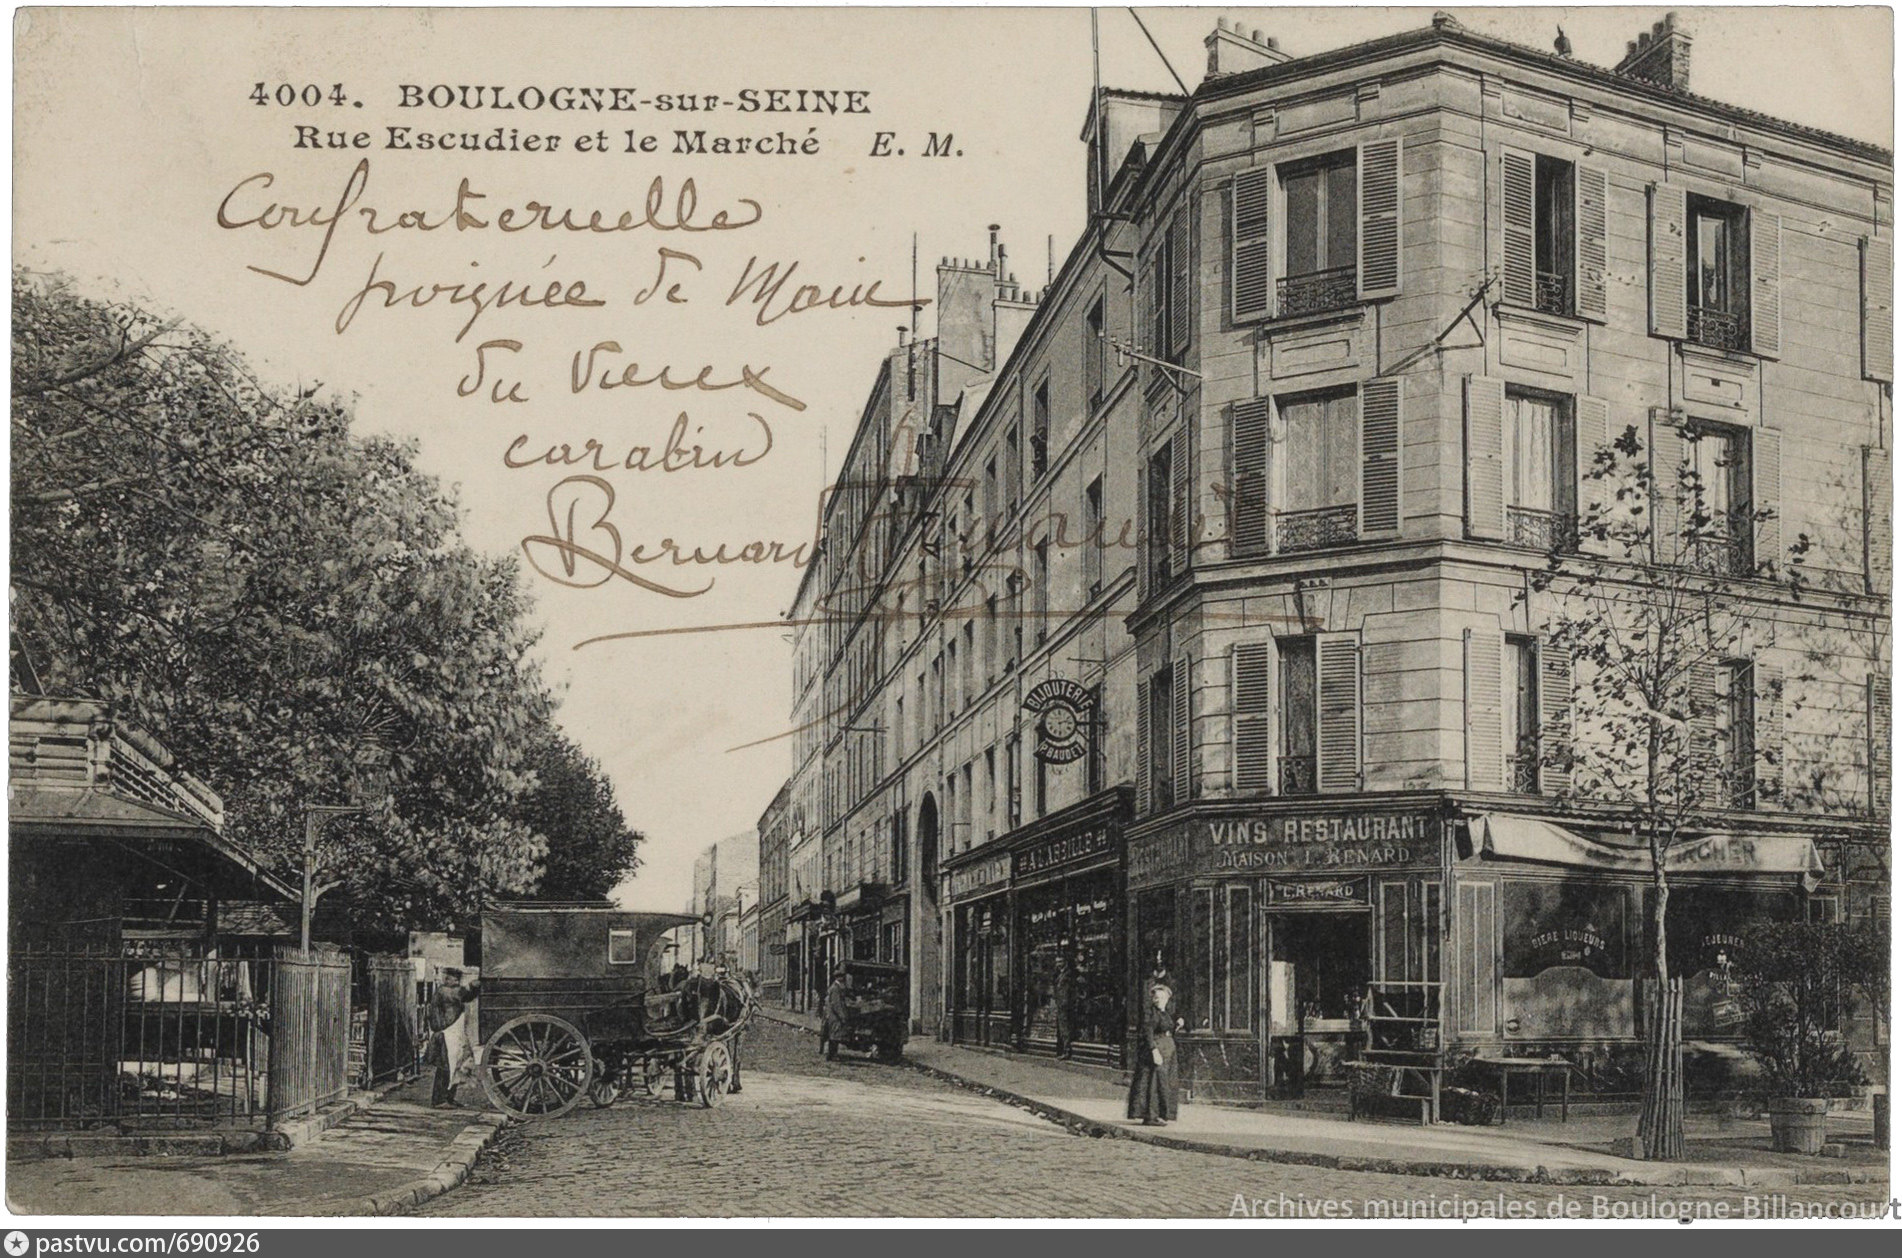 4004. BOULOGNE-sur-SEINE
Rue Escudier et le Marché E. M.
Confraternelle
poignée de Main
du vieux
carabin
Bernard
BIJOUTERIE
P. BAUDET
A L'ABEILLE
VINS RESTAURANT
MAISON L. RENARD
L. RENARD
BIERE LIQUEURS
Archives municipales de Boulogne-Billancourt
pastvu.com/690926